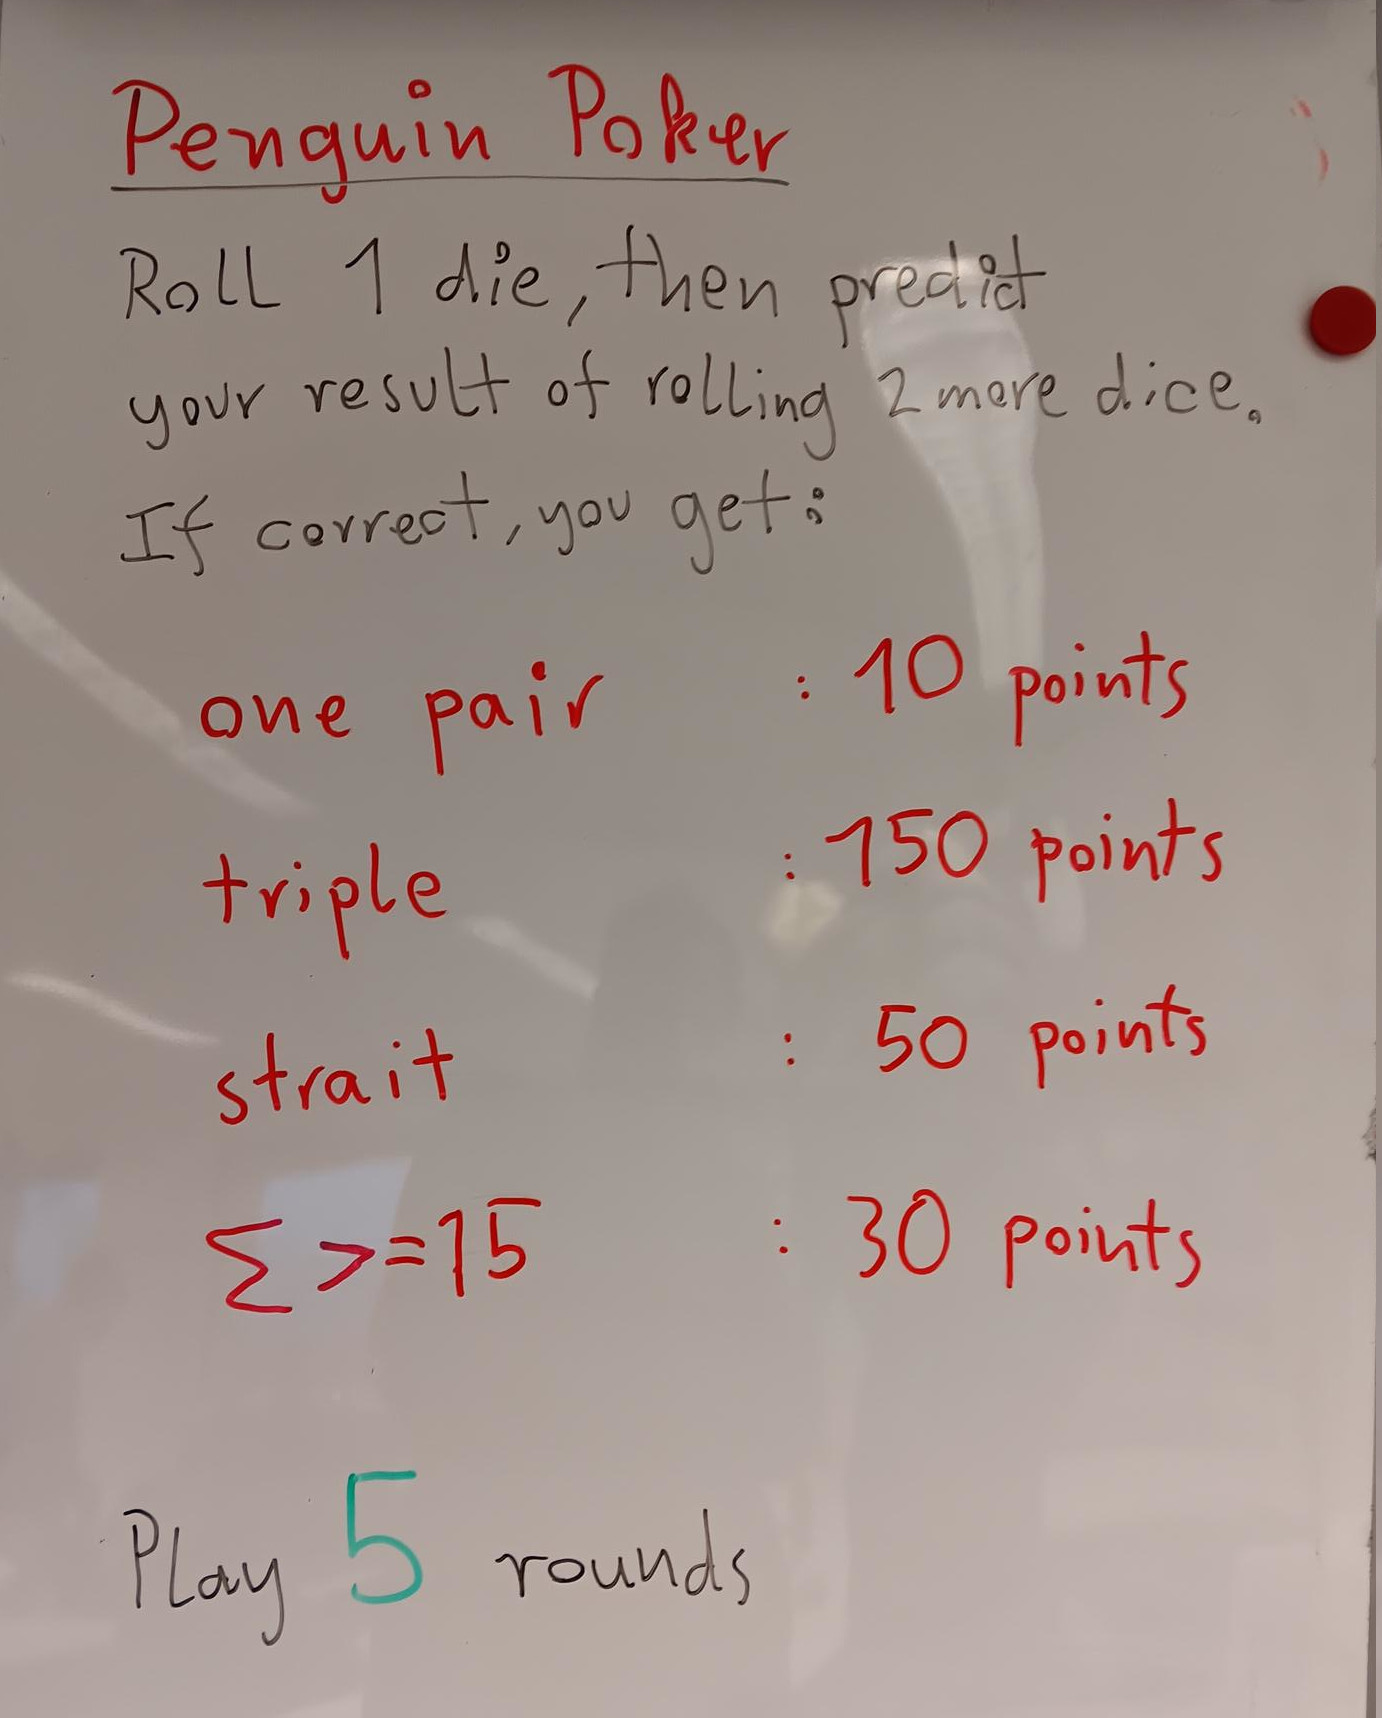 Penguin Poker
Roll 1 die, then predict
your result of rolling 2 more dice.
If correct, you get:
one pair : 10 points
triple : 150 points
strait : 50 points
Σ >=15 : 30 points
Play 5 rounds